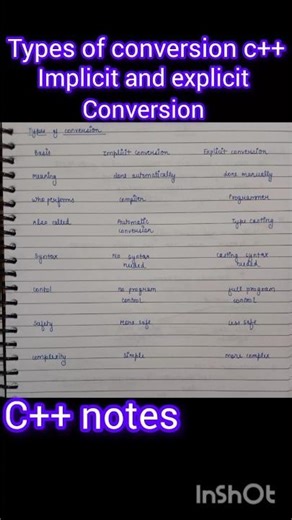 Types of conversion c++
Implicit and explicit
Conversion
Types of conversion
Basis Implicit conversion Explicit conversion
Meaning done automatically done manually
who performs compiler Programmer
Also called Automatic conversion Type casting
Syntax No syntax needed casting syntax needed
Control No program control full program control
Safety More safe Less safe
Complexity Simple more complex
C++ notes
InShOt